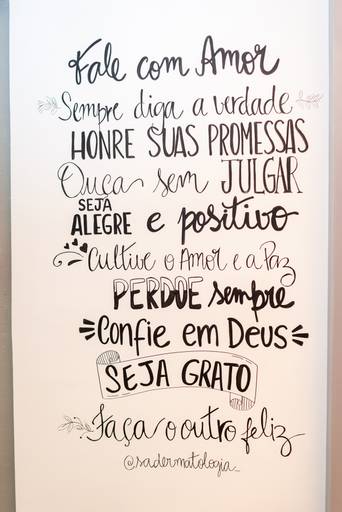 Fale com Amor
Sempre diga a verdade
HONRE SUAS PROMESSAS
Ouça sem JULGAR
SEJA
ALEGRE e positivo
Cultive o Amor e a Paz
PERDOE sempre
Confie em Deus
SEJA GRATO
Faça o outro feliz
@sadermatologia_